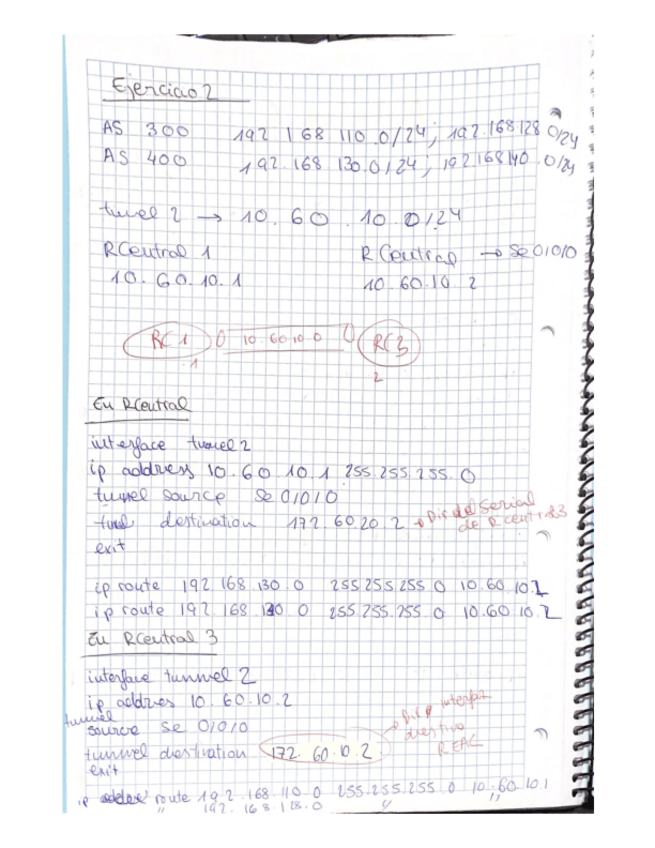 Ejercicio 2
AS 300 192 168 110.0/24; 192.168 128 0/24
AS 400 192.168 130.0/24; 192 168 140.0/24
tunel 2 → 10.60.10.0/24
RCentral 1 R Central → Se 0/0/0
10.60.10.1 10.60.10 2
RC1 10.60 10 0 RC3
1 2
En RCentral
interface tunnel 2
ip address 10.60 10.1 255.255.255.0
tunnel source Se 0/0/0
tunel destination 172.60.20.2 → Dir del Serial
de R central 3
exit
ip route 192 168 130 0 255 255 255 0 10.60.10.2
ip route 192 168 0 255 255.255 0 10.60 10.2
En RCentral 3
interface tunnel 2
ip addres 10.60.10.2
tunnel
source Se 0/0/0
tunnel destination 172.60.10.2 → Dir interfaz
R EAC
exit
ip route 192.168 110 0 255.255.255 0 10.60.10.1
" 192.168.128.0 " "